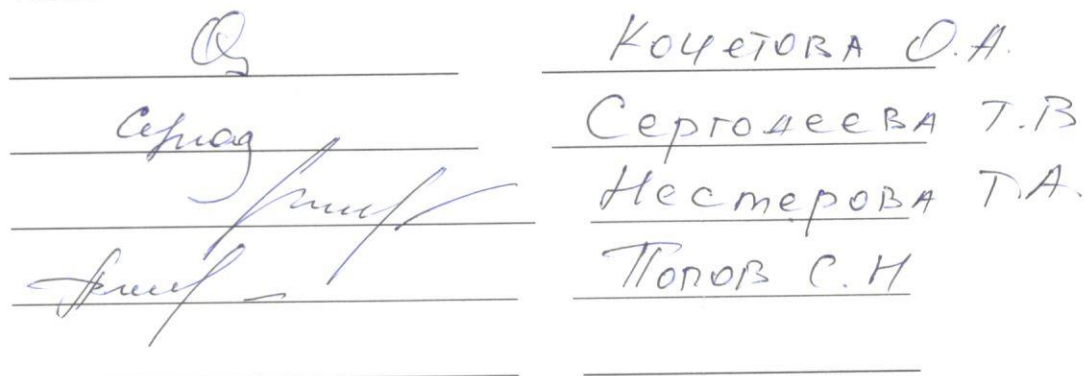 Кочетова О.А.
Сергодеева Т.В
Нестерова Т.А.
Попов С.Н